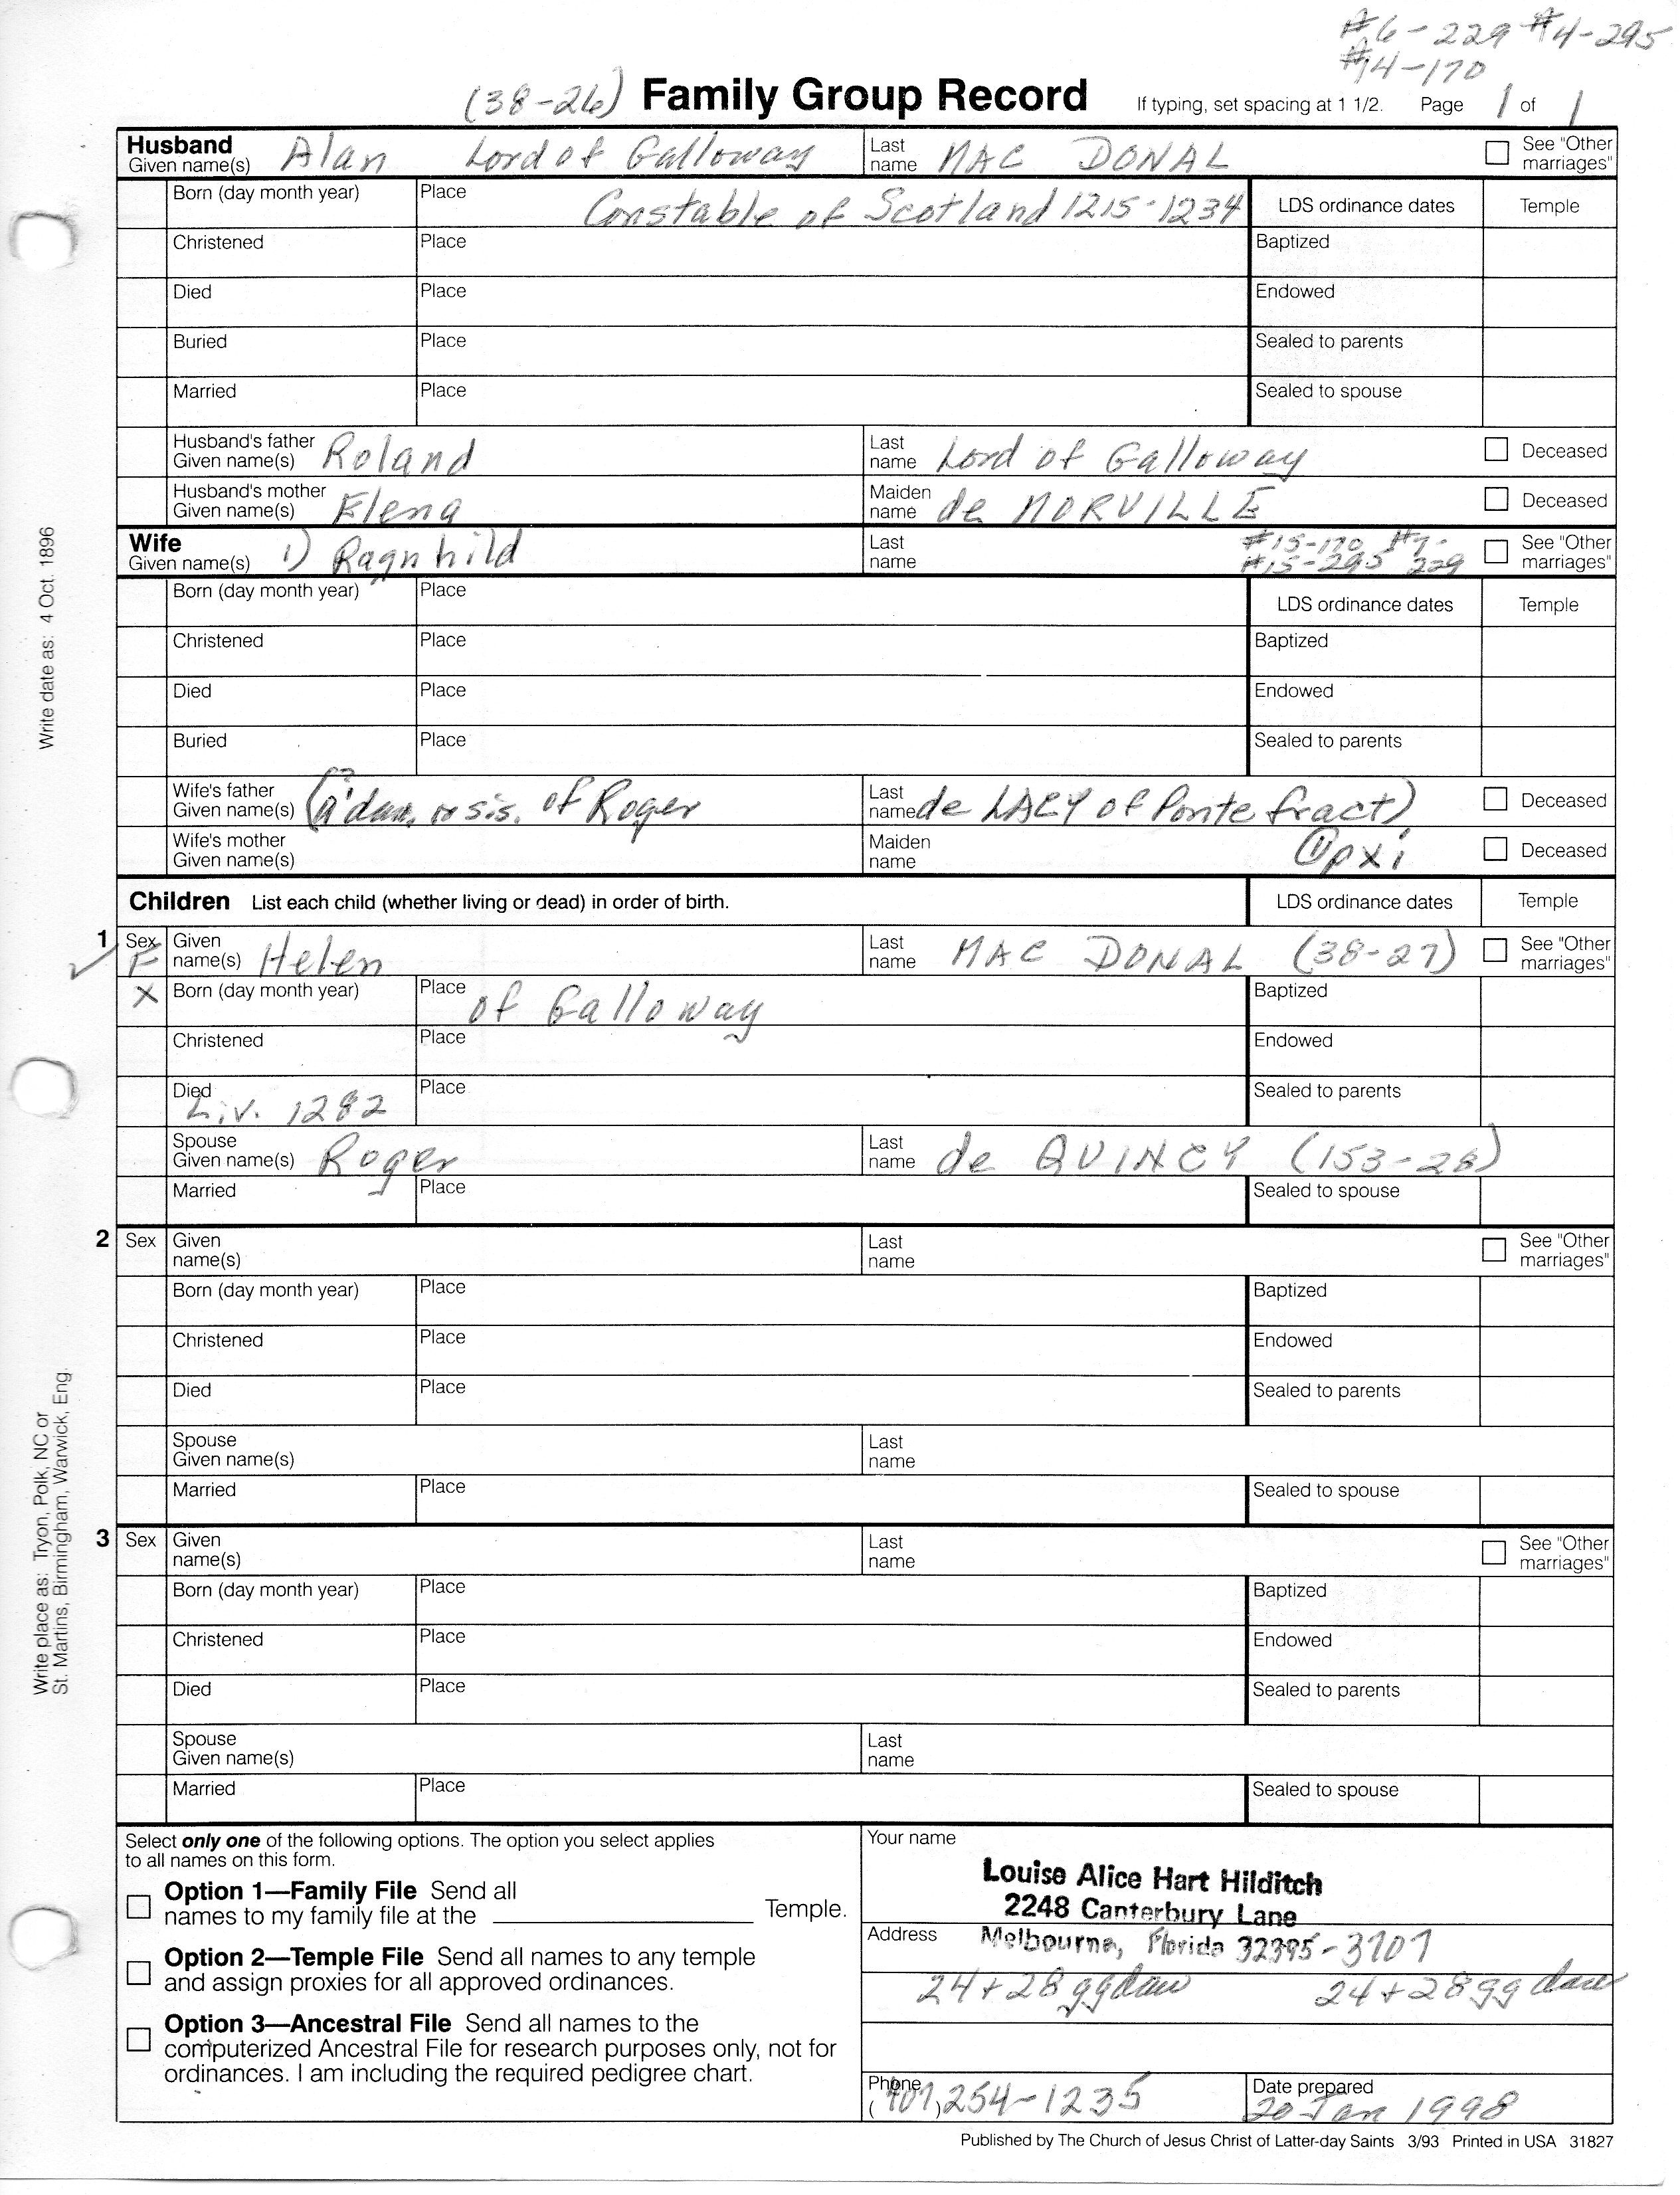 #6-229 #4-295
#14-170
(38-26) Family Group Record If typing, set spacing at 1 1/2. Page 1 of 1
Husband
Given name(s) Alan Lord of Galloway Last name MAC DONAL See "Other marriages"
Born (day month year) Place Constable of Scotland 1215-1234 LDS ordinance dates Temple
Christened Place Baptized
Died Place Endowed
Buried Place Sealed to parents
Married Place Sealed to spouse
Husband's father Given name(s) Roland Last name Lord of Galloway Deceased
Husband's mother Given name(s) Elena Maiden name de MORVILLE Deceased
Wife
Given name(s) 1) Ragnhild Last name #15-170 #7-229 #15-295 See "Other marriages"
Born (day month year) Place LDS ordinance dates Temple
Christened Place Baptized
Died Place Endowed
Buried Place Sealed to parents
Wife's father Given name(s) (a dau. or sis. of Roger Last name de LACY of Pontefract) Deceased
Wife's mother Given name(s) Maiden name (1) pxi Deceased
Children List each child (whether living or dead) in order of birth. LDS ordinance dates Temple
1 Sex F Given name(s) Helen Last name MAC DONAL (38-27) See "Other marriages"
X Born (day month year) Place of Galloway Baptized
Christened Place Endowed
Died Liv. 1282 Place Sealed to parents
Spouse Given name(s) Roger Last name de QUINCY (153-28)
Married Place Sealed to spouse
2 Sex Given name(s) Last name See "Other marriages"
Born (day month year) Place Baptized
Christened Place Endowed
Died Place Sealed to parents
Spouse Given name(s) Last name
Married Place Sealed to spouse
3 Sex Given name(s) Last name See "Other marriages"
Born (day month year) Place Baptized
Christened Place Endowed
Died Place Sealed to parents
Spouse Given name(s) Last name
Married Place Sealed to spouse
Select only one of the following options. The option you select applies
to all names on this form.
Option 1—Family File Send all
names to my family file at the Temple.
Option 2—Temple File Send all names to any temple
and assign proxies for all approved ordinances.
Option 3—Ancestral File Send all names to the
computerized Ancestral File for research purposes only, not for
ordinances. I am including the required pedigree chart.
Your name
Louise Alice Hart Hilditch
2248 Canterbury Lane
Address Melbourne, Florida 32395-3707
24+28 gg dau 24+28 gg dau
Phone (407) 254-1235 Date prepared 20 Jan 1998
Published by The Church of Jesus Christ of Latter-day Saints 3/93 Printed in USA 31827
Write date as: 4 Oct. 1896
Write place as: Tryon, Polk, NC or
St. Martins, Birmingham, Warwick, Eng.